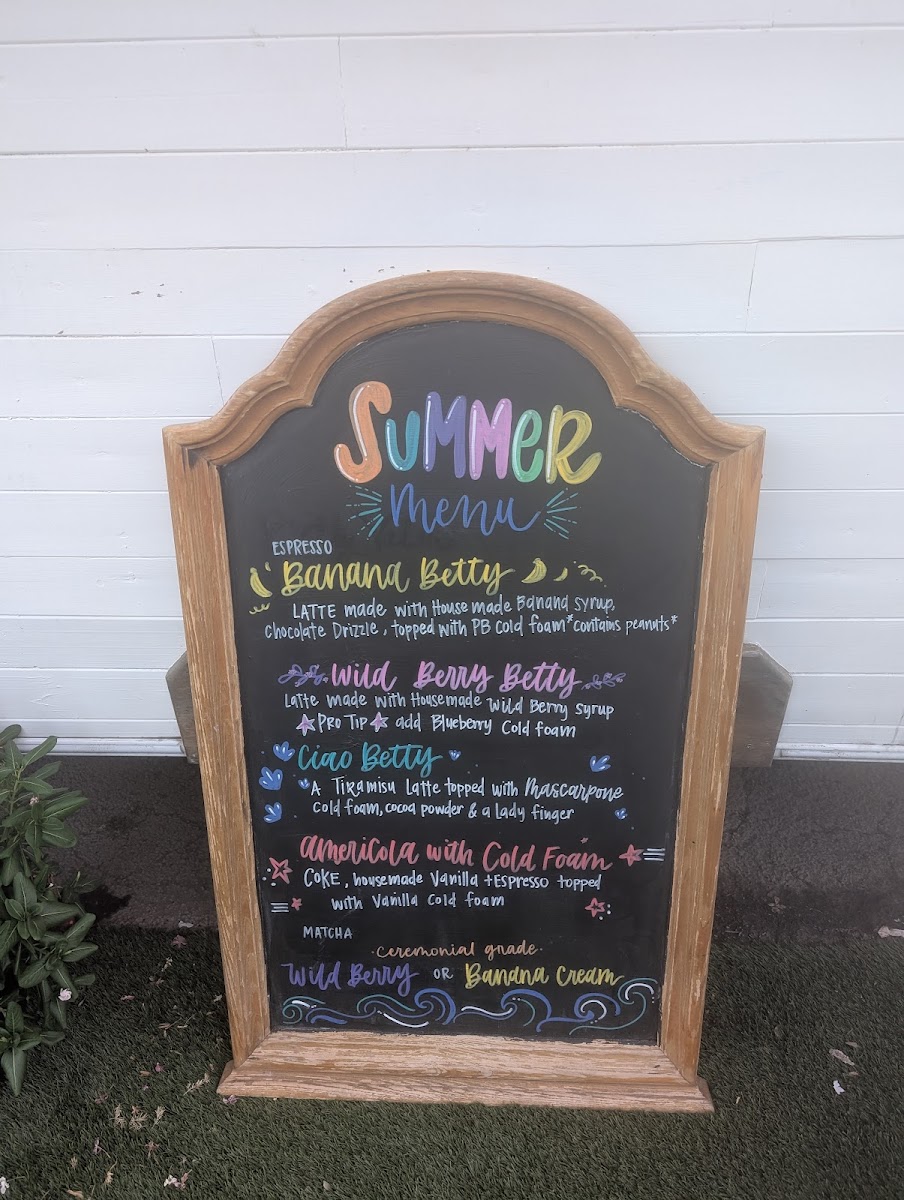 Summer
Menu
ESPRESSO
Banana Betty
LATTE made with House made Banana syrup,
Chocolate Drizzle, topped with PB cold foam *contains peanuts*
Wild Berry Betty
Latte made with Housemade Wild Berry syrup
PRO TIP add Blueberry Cold foam
Ciao Betty
A Tiramisu Latte topped with Mascarpone
Cold foam, cocoa powder & a Lady finger
Americola with Cold Foam
COKE, housemade Vanilla + Espresso topped
with Vanilla Cold foam
MATCHA
ceremonial grade
Wild Berry OR Banana Cream